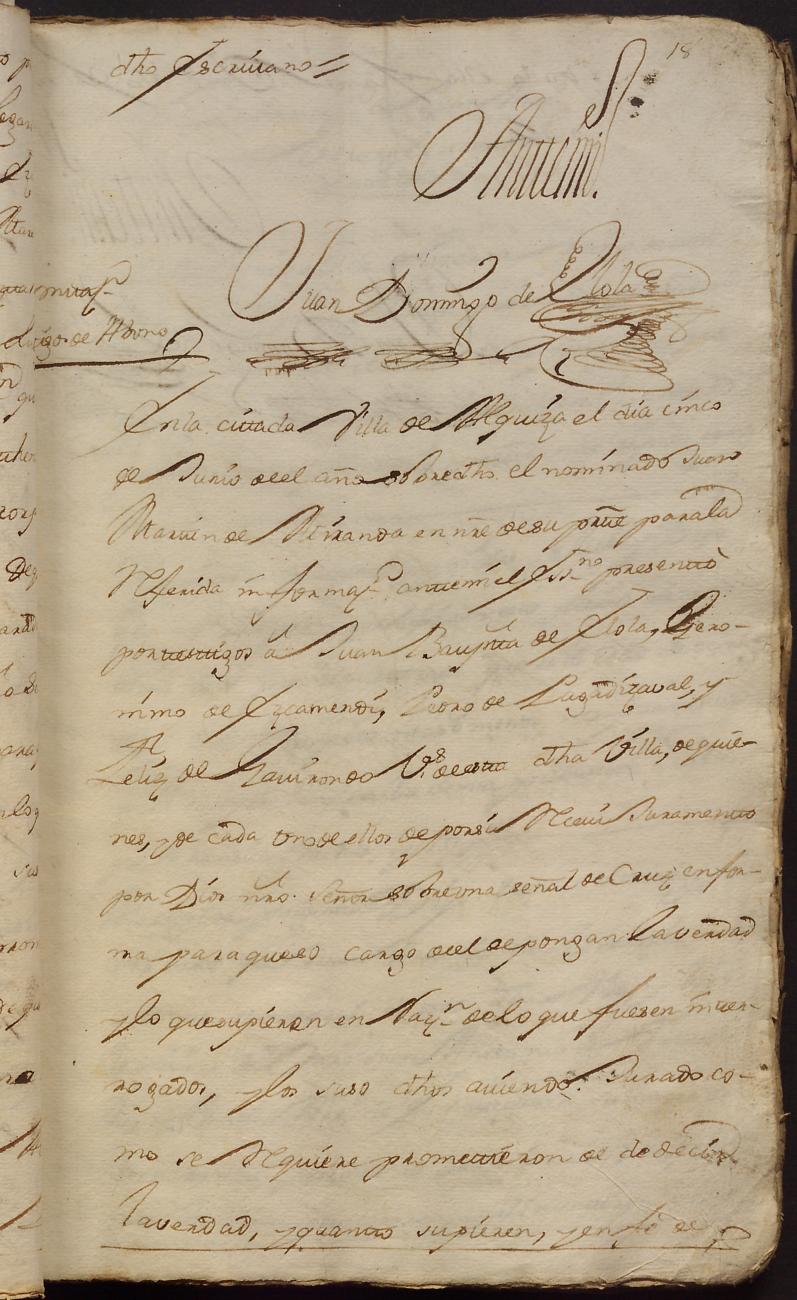 18
dho Escrivano=
Ante mi
Juan Domingo de Elola
tigos de Abono
En la citada Villa de Alquiza el dia cinco
de Junio de el año sobredho. el nominado Juan
Martin de Miranda en nre de su pñte para la
Referida informaz.n ante mi el Ss.no presentò
por testigos à Juan Bauptta de Elola, Gero-
nimo de Yzamendi, Pedro de Lugadizaval, y
Feliz de Gavirondo V.os de esta dha Villa, de quie-
nes, y de cada uno de ellos de porsi Recivi Juramento
por Dios nro. señor sobre una señal de Cruz en for-
ma para que so cargo de el depongan la verdad
y lo que supieren en Raz.n de lo que fueren inter-
rogados, y los suso dhos aviendo Jurado co-
mo se Requiere prometieron de de decir
la verdad, y quanto supieren, y en fe de